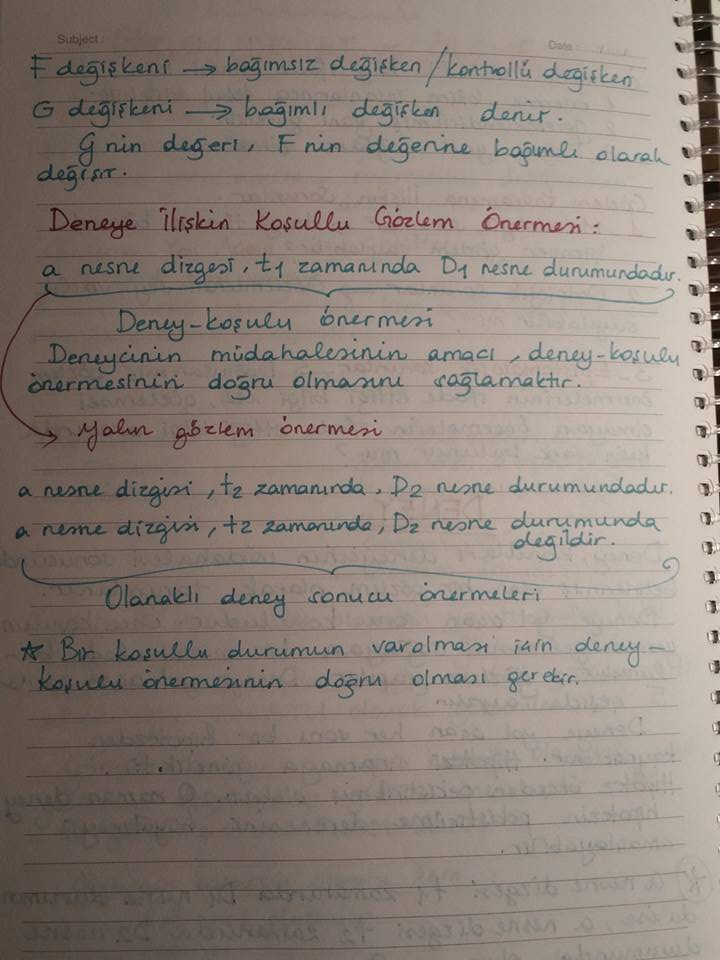 Subject :
Date :
F değişkeni → bağımsız değişken / kontrollü değişken
G değişkeni → bağımlı değişken denir.
G nin değeri, F nin değerine bağımlı olarak
değişir.
Deneye İlişkin Koşullu Gözlem Önermesi :
a nesne dizgesi, t1 zamanında D1 nesne durumundadır.
Deney-koşulu önermesi
Deneycinin müdahalesinin amacı, deney-koşulu
önermesinin doğru olmasını sağlamaktır.
→ Yalın gözlem önermesi
a nesne dizgisi, t2 zamanında, D2 nesne durumundadır.
a nesne dizgisi, t2 zamanında, D2 nesne durumunda
değildir.
Olanaklı deney sonucu önermeleri
★ Bir koşullu durumun varolması için deney-
koşulu önermesinin doğru olması gerekir.